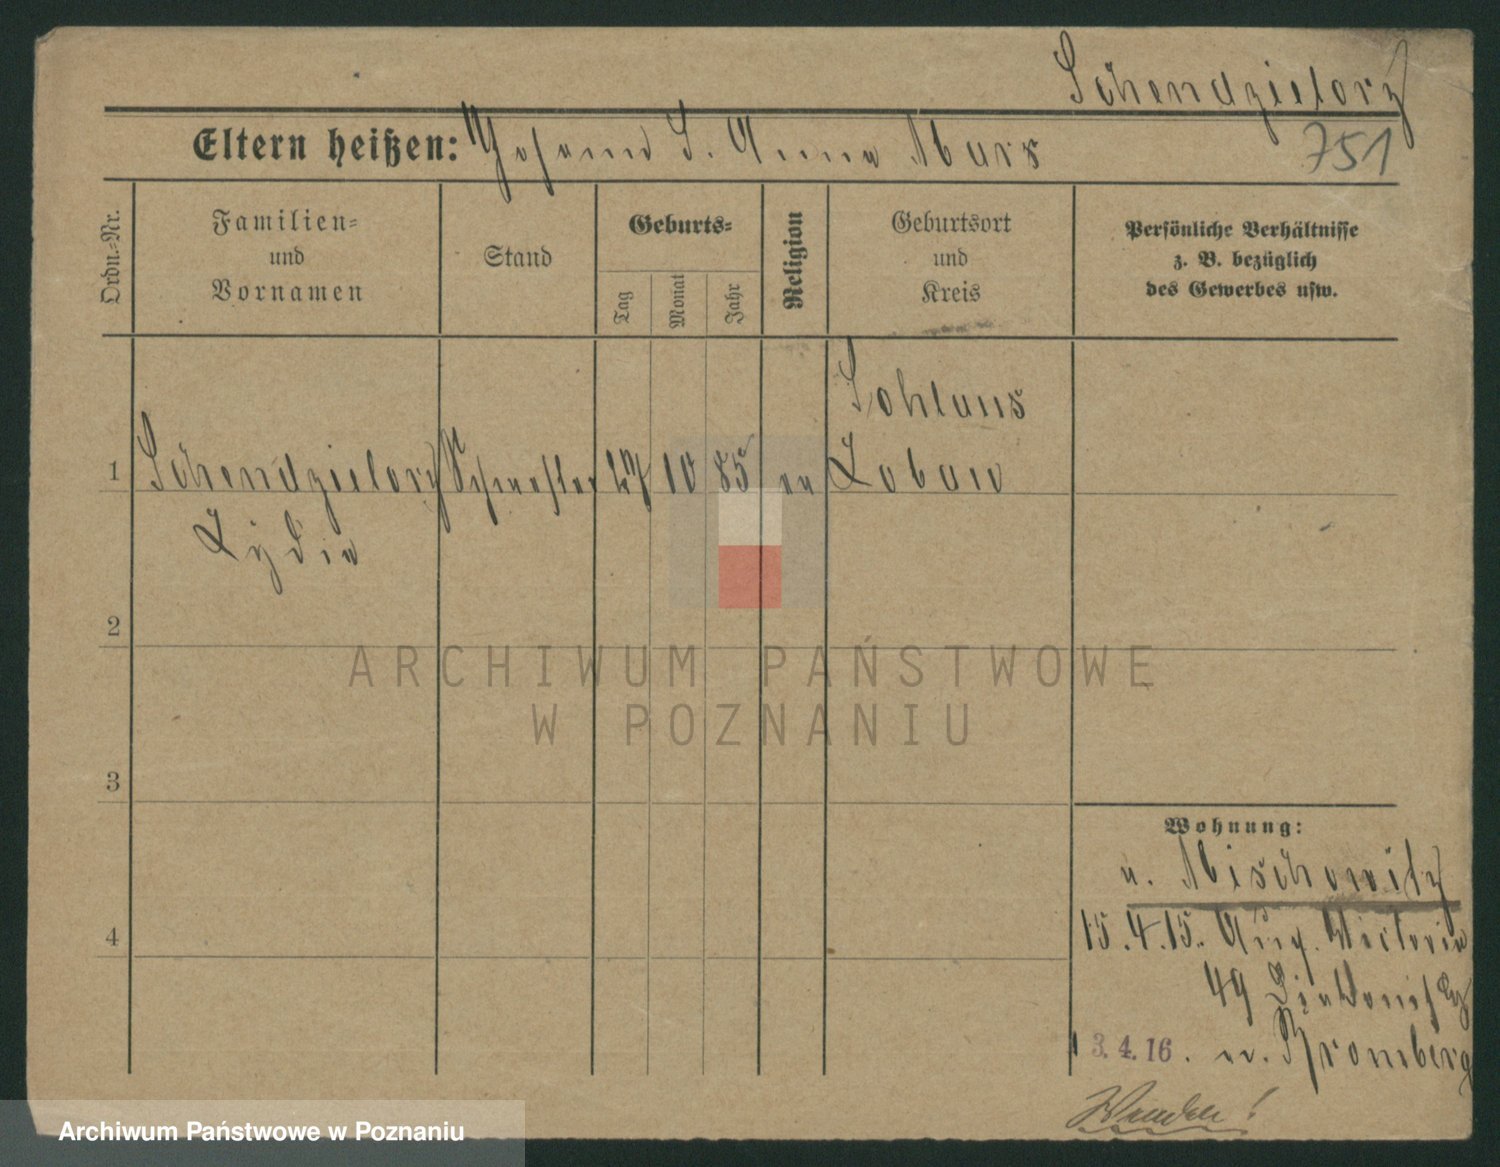 Schendzielorz
751
Eltern heißen: Johann S. Anna Mars
Ordn.=Nr.
Familien=
und
Vornamen
Stand
Geburts=
Tag
Monat
Jahr
Religion
Geburtsort
und
Kreis
Persönliche Verhältnisse
z. B. bezüglich
des Gewerbes usw.
1 Schendzielorz Schwester 27 10 85 ev
Lydia
Löbau
2
3
4
Wohnung:
n. Mischowitz
15.4.15. Aug. Victoria
49
13.4.16. n. Bromberg
Wenden!
ARCHIWUM PAŃSTWOWE
W POZNANIU
Archiwum Państwowe w Poznaniu